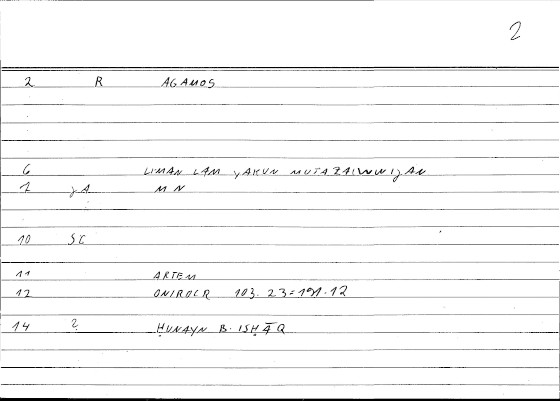 2
2 R AGAMOS
6 LIMAN LAM YAKUN
7 YA M N
10 SC
11 ARTEM
12 ONIROCR 103. 23 = 191. 12
14 2 ḤUNAYN B. ISḤĀQ